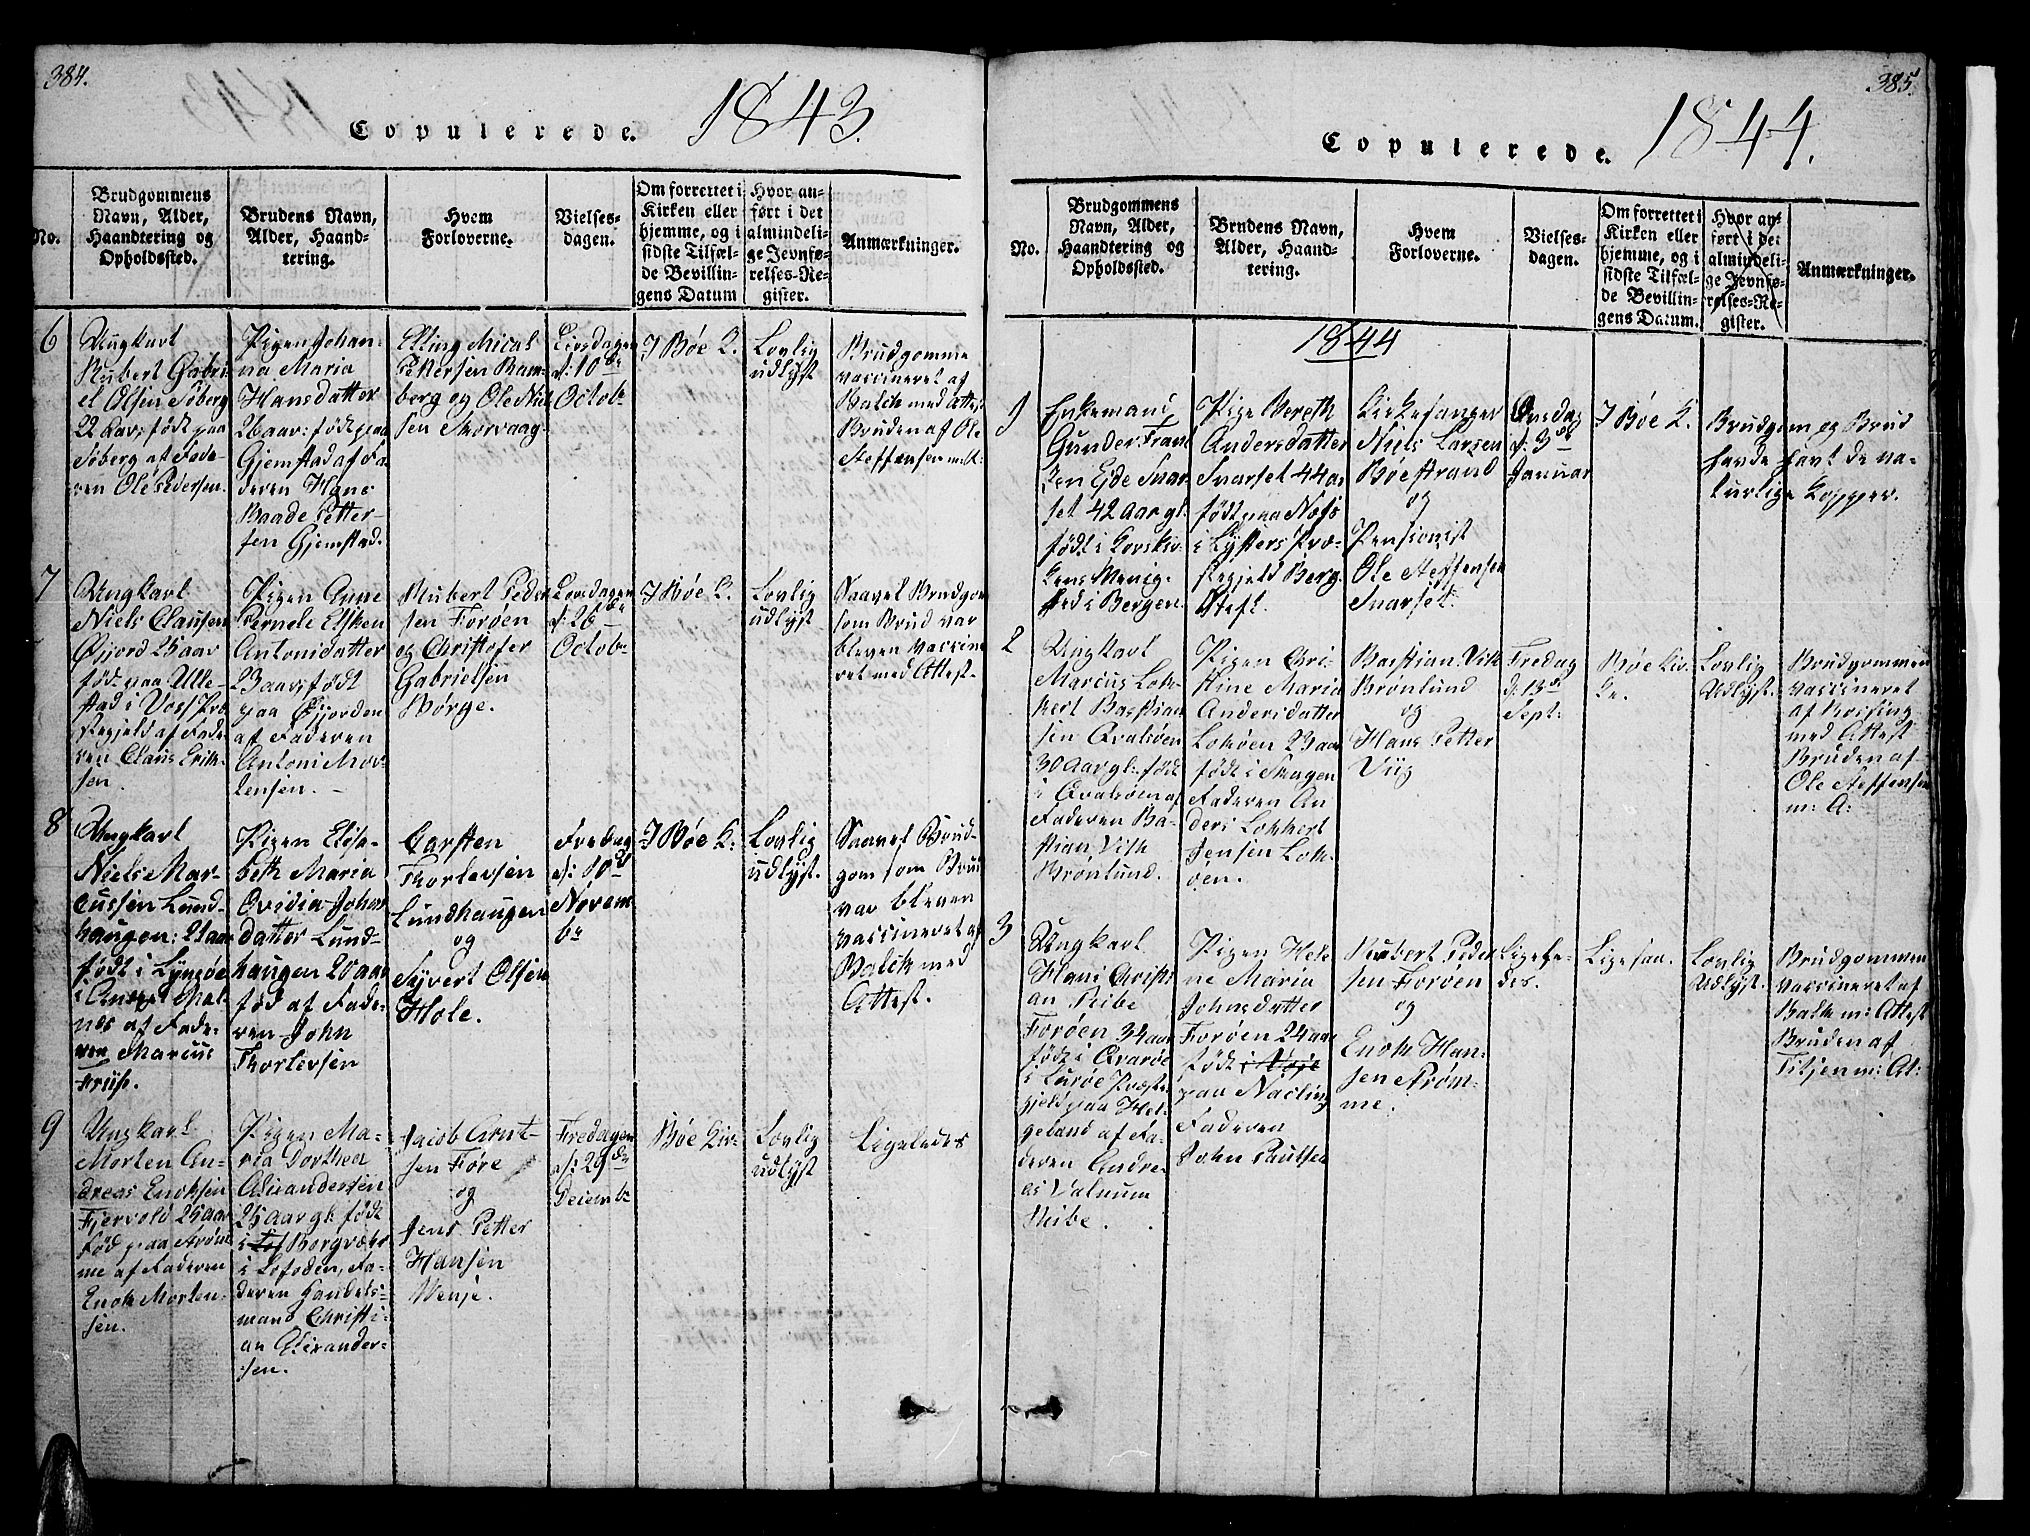 384.
Copulerede. 1843.
No.
Brudgommens
Navn, Alder,
Haandtering og
Opholdssted.
Brudens Navn,
Alder, Haand-
tering.
Hvem
Forloverne.
Vielses-
dagen.
Om forrettet i
Kirken eller
hjemme, og i
sidste Tilfæl-
de Bevillin-
gens Datum
Hvor an-
ført i det
almindeli-
ge Jevnfø-
relses-Re-
gister.
Anmærkninger.
6
Ungkarl
Rubert Gabri-
el Olsen Søberg
22 Aar, født paa
Søberg af Fade-
ren Ole Pedersen.
Pigen Johan-
na Maria
Hansdatter
26 aar: født paa
Gjemstad af Fa-
deren Hans
Baade Petter-
sen Gjemstad.
Elling Mical
Pettersen Ram-
berg og Ole Niel-
sen Skorvaag
Tirsdagen
d: 10de
Octobr
I Bøe K.
Lovlig
udlyst
Brudgomme
vaccineret af
Balck med Attest
Bruden af Ole
Steffensen m: A:
7
Ungkarl
Niels Clausen
Øijord 25 aar
født paa Ulle-
stad i Voss Præ-
stegjeld af Fade-
ren Claus Erik-
sen.
Pigen Anne
Pernele Elsken
Antonidatter
23 aar, født
paa Øijorden
af Faderen
Antoni Mor-
tensen. –
Rubert Peder-
sen Forøen
og Christofer
Gabrielsen
Børge.
Torsdagen
d: 26de
Octobr
I Bøe K.
Lovlig
udlyst
Saavel Brudgom
som Brud var
bleven vaccine-
ret med Attest.
8
Ungkarl
Niels Mar-
cussen Lund-
haugen: 21 aar
født i Lyngøe
i
af Fade-
ren Marcus
Friis.
Pigen Elisa-
beth Maria
Ovidia Johns
datter Lund-
haugen 20 aar
fød af Fade-
ren John
Thorlevsen
Carsten
Thorlevsen
Lundhaugen
og
Syvert Olsen
Hole.
Fredag
d: 10de
Novem
br
I Bøe K:
Lovlig
udlyst.
Saavel Brud-
gom som Brud
var bleven
vaccineret af
Balck med
Attest.
9
Ungkarl
Morten An-
dreas Enoksen
Fjervold 25 aar
Fød paa Strøm-
me af Faderen
Enok Morten-
sen.
Pigen Ma-
ria Dorthea
Alexandersen
25 Aar gl. født
i Borgvær
i Lofoden, Fa-
deren Handels-
mand Christi-
an Alexander-
sen.
Jacob Arnt-
sen Føre
og
Jens Petter
Hansen
Wenje.
Fredagen
d: 29de
Decembr
Bøe Kir:
Lovlig
udlyst
Ligeledes
385.
Copulerede. 1844.
No.
Brudgommens
Navn, Alder,
Haandtering og
Opholdssted.
Brudens Navn,
Alder, Haand-
tering.
Hvem
Forloverne.
Vielses-
dagen.
Om forrettet i
Kirken eller
hjemme, og i
sidste Tilfæl-
de Bevillin-
gens Datum.
Hvor an-
ført i det
almindeli-
ge Jevnfø-
relses-Re-
gister.
Anmærkninger.
1844
1
Enkemand
Gunder Frand-
sen Eide Snar-
set 42 aar gl.
født i Korskir-
kens Menig-
hed i Bergen.
Pige Bereth
Andersdatter
Snarset 44 aar
født paa Næss
i Lysters Præ-
stegjeld Berg.
Stift.
Kirkesanger
Niels Larsen
Bøestrand
og
Pensionist
Ole Steffensen
Snarset.
Onsdag
d: 3de
Januar
I Bøe K.
Brudgom og Brud
havde havt de na-
turlige Kopper.
2
Ungkarl
Marcus Lok-
kert Bastian
sen Qvalsøen
30 Aar gl: født
i Qvalsøen af
Faderen Ba-
stian Visk
Brønlund.
Pigen Chri-
stine Maria
Andersdatter
Lokøen 23 aar
født i Skagen
Faderen An
ders Lokkert
Jensen Lok-
øen.
Bastian Visk
Brønlund
og
Hans Petter
Viig
Fredag
d: 13de
Sept:
Bøe Kir-
ke.
Lovlig
Udlyst.
Brudgommen
vaccineret
af Rossing
med Attest
Bruden af
Ole Steffensen
m: A:
3
Ungkarl
Hans Christi
an Ribe
Forøen 34 aar
født i Qvarøe
i Lurøe Præste-
gjeld paa Hel-
geland af Fa-
deren Andre-
as Valnum
Ribe.
Pigen Hele
ne Maria
Johnsdatter
Forøen 24 aar
født
paa
Faderen
John Paulsen
Rubert Peder
sen Forøen
og
Enok Han-
sen Strøm-
me.
Ligele-
des.
Ligesaa.
Lovlig
Udlyst.
Brudgommen
vaccineret af
Balk m: Attest
Bruden af
Titjen m: At: